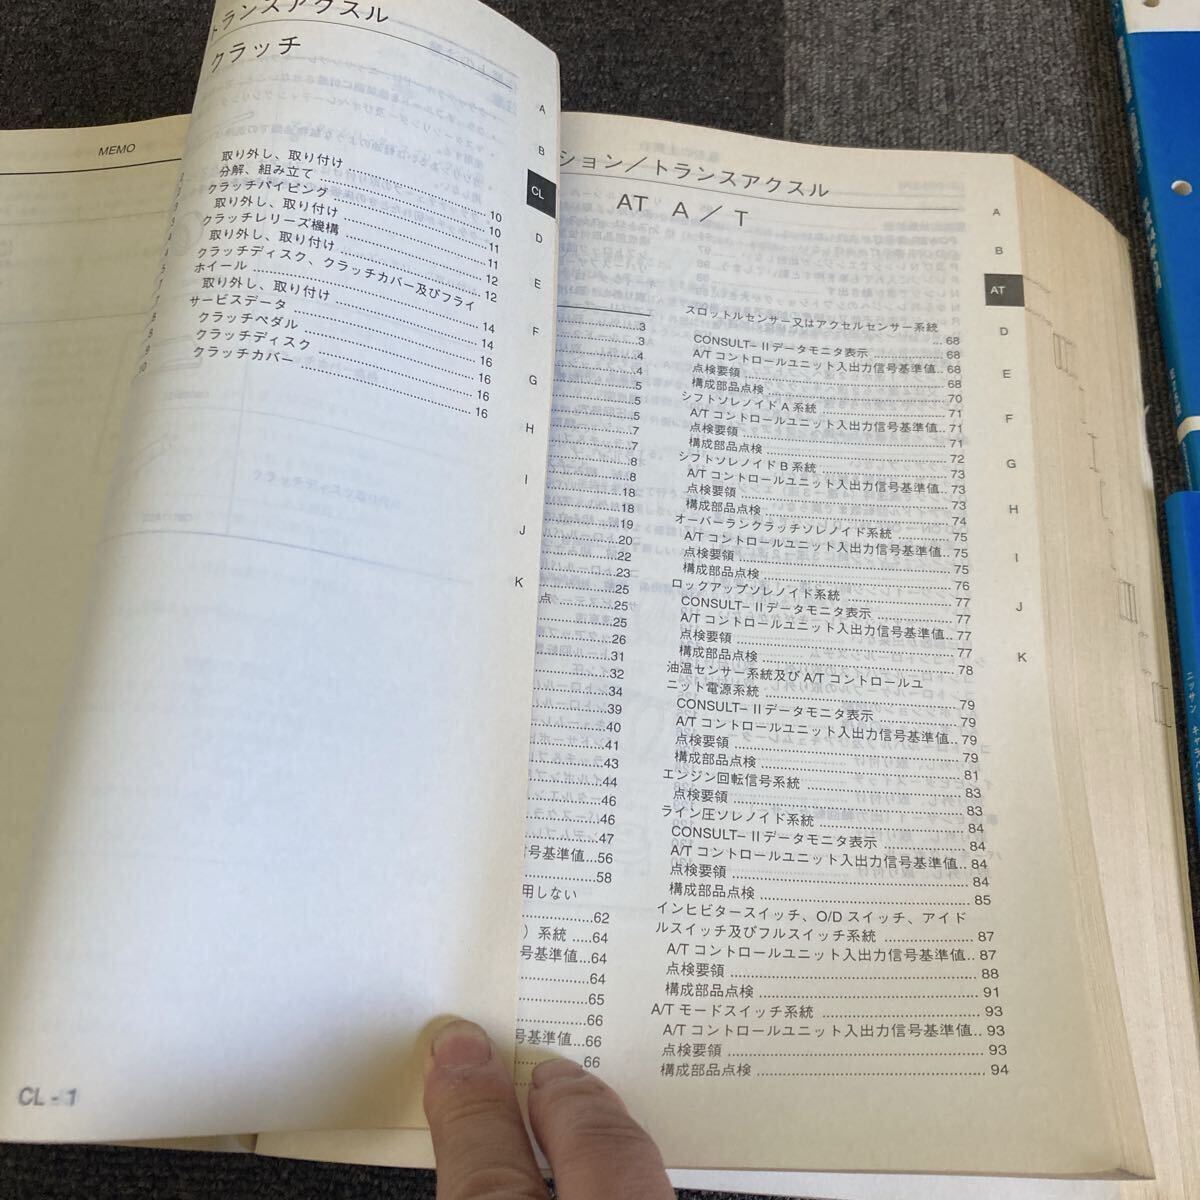 トランスアクスル
クラッチ
MEMO
取り外し、取り付け
分解、組み立て ............ 10
クラッチパイピング ............ 10
取り外し、取り付け ............ 11
クラッチレリーズ機構 ............ 11
取り外し、取り付け ............ 12
クラッチディスク、クラッチカバー及びフライ
ホイール ............ 12
取り外し、取り付け ............ 14
サービスデータ ............ 14
クラッチペダル ............ 16
クラッチディスク ............ 16
クラッチカバー ............ 16
A
B
CL
D
E
F
G
H
I
J
K
CL - 1
ション／トランスアクスル
AT A／T
...3
...3
...4
...4
...5
...5
...5
...7
...7
...8
...8
...18
...18
...19
...20
...22
...23
...25
点 ...25
...25
...26
...31
...32
...34
...39
...40
...41
...43
...44
...46
...46
...47
信号基準値...56
...58
用しない
...62
）系統 ...64
号基準値...64
...64
...65
...66
号基準値...66
...66
スロットルセンサー又はアクセルセンサー系統
... 68
CONSULT–Ⅱデータモニタ表示 ... 68
A/T コントロールユニット入出力信号基準値.. 68
点検要領 ... 68
構成部品点検 ... 70
シフトソレノイド A 系統 ... 71
A/T コントロールユニット入出力信号基準値.. 71
点検要領 ... 71
構成部品点検 ... 72
シフトソレノイド B 系統 ... 73
A/T コントロールユニット入出力信号基準値.. 73
点検要領 ... 73
構成部品点検 ... 74
オーバーランクラッチソレノイド系統 ... 75
A/T コントロールユニット入出力信号基準値.. 75
点検要領 ... 75
構成部品点検 ... 76
ロックアップソレノイド系統 ... 77
CONSULT–Ⅱデータモニタ表示 ... 77
A/T コントロールユニット入出力信号基準値.. 77
点検要領 ... 77
構成部品点検 ... 78
油温センサー系統及び A/T コントロールユ
ニット電源系統 ... 79
CONSULT–Ⅱデータモニタ表示 ... 79
A/T コントロールユニット入出力信号基準値.. 79
点検要領 ... 79
構成部品点検 ... 81
エンジン回転信号系統 ... 83
点検要領 ... 83
ライン圧ソレノイド系統 ... 84
CONSULT–Ⅱデータモニタ表示 ... 84
A/T コントロールユニット入出力信号基準値.. 84
点検要領 ... 84
構成部品点検 ... 85
インヒビタースイッチ、O/D スイッチ、アイド
ルスイッチ及びフルスイッチ系統 ... 87
A/T コントロールユニット入出力信号基準値.. 87
点検要領 ... 88
構成部品点検 ... 91
A/T モードスイッチ系統 ... 93
A/T コントロールユニット入出力信号基準値.. 93
点検要領 ... 93
構成部品点検 ... 94
A
B
AT
D
E
F
G
H
I
J
K